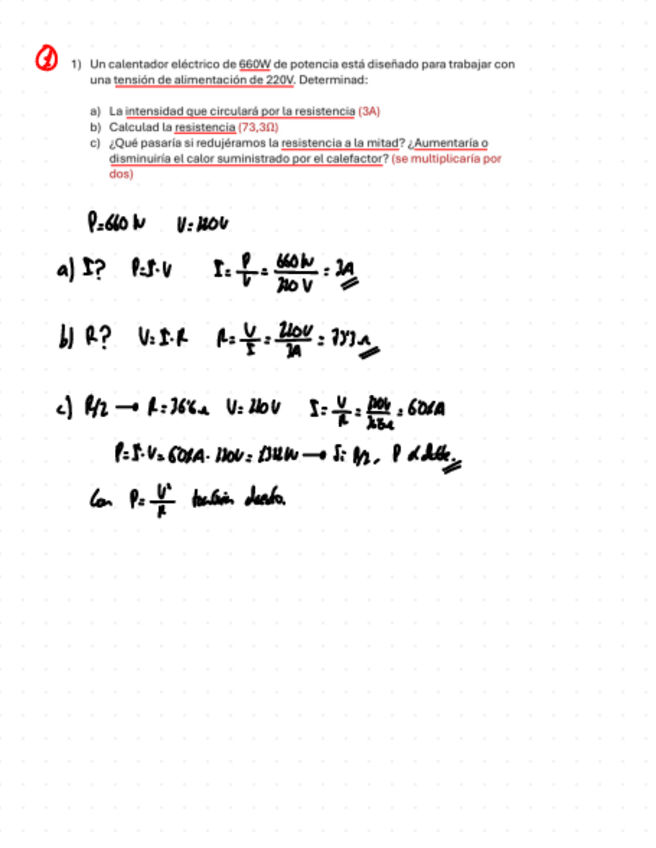 1
1) Un calentador eléctrico de 660W de potencia está diseñado para trabajar con
una tensión de alimentación de 220V. Determinad:
a) La intensidad que circulará por la resistencia (3A)
b) Calculad la resistencia (73,3Ω)
c) ¿Qué pasaría si redujéramos la resistencia a la mitad? ¿Aumentaría o
disminuiría el calor suministrado por el calefactor? (se multiplicaría por
dos)
P=660W V=220V
a) I? P=I·V I=P/V=660W/220V=3A
b) R? V=I·R R=V/I=220V/3A=73'3Ω
c) R/2 → R=36'6Ω V=220V I=V/R=
P=I·V= → Si R/2, P
Con P=V²/R también